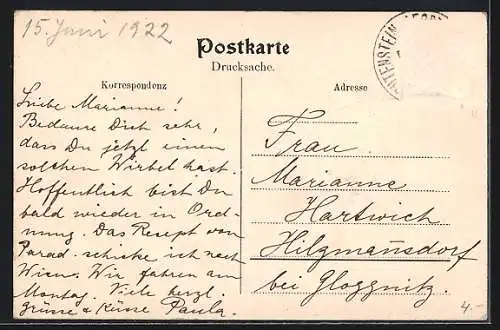 15. Juni 1922
Postkarte
Drucksache.
Korrespondenz
Adresse
Liebe Marianne!
Bedaure Dich sehr,
dass Du jetzt einen
solchen Wirbel hast.
Hoffentlich bist Du
bald wieder in Ord-
nung. Das Rezept von
Parad. schicke ich nach
Wien. Wir fahren am
Montag. Viele herzl.
Grüsse & Küsse Paula.
Frau
Marianne
Hartwich
Hilzmannsdorf
bei Gloggnitz.
4.-